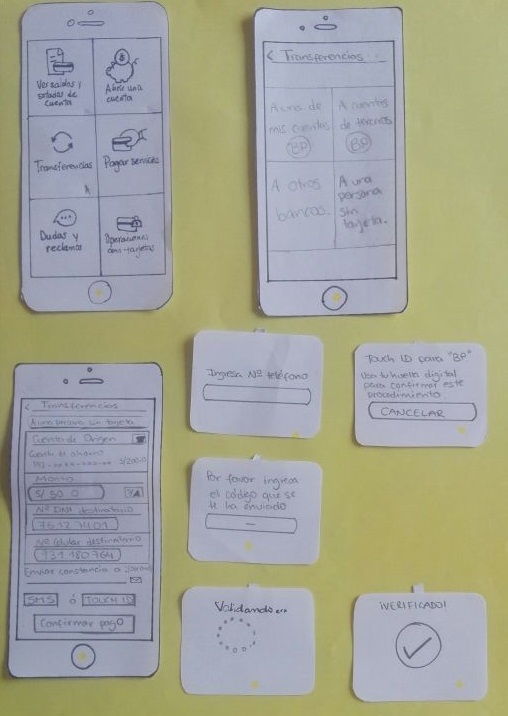 Ver saldos y
estados de
cuenta
Abrir una
cuenta
Transferencias
Pagar servicios
Dudas y
reclamos
Operaciones
con tarjetas
< Transferencias
A una de
mis cuentas
BP
A cuentas
de terceros
BP
A otros
bancos.
A una
persona
sin
tarjeta.
< Transferencias
A una persona sin tarjeta
Cuenta de Origen
Cuenta de ahorro
Monto
S/ 50.0
Nº DNI destinatario
Nº Celular destinatario
931 180 764
Enviar constancia a
SMS ó TOUCH ID
Confirmar pago
Ingresa Nº teléfono
Touch ID para "BP"
Usa tu huella digital
para confirmar este
procedimiento.
CANCELAR
Por favor ingresa
el código que se
te ha enviado
Validando...
¡VERIFICADO!